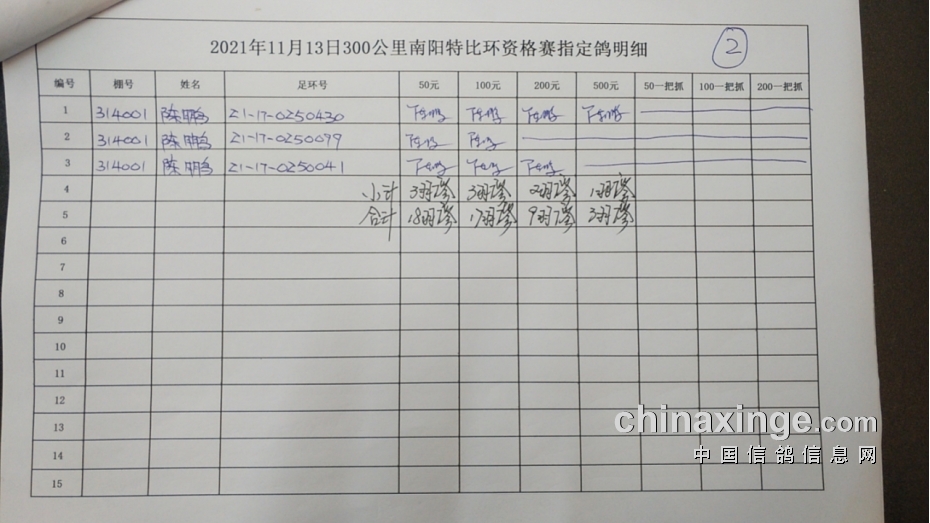 2021年11月13日300公里南阳特比环资格赛指定鸽明细
②
编号 棚号 姓名 足环号 50元 100元 200元 500元 50一把抓 100一把抓 200一把抓
1 314001 陈鹏 21-17-0250430 陈鹏 陈鹏 陈鹏 陈鹏
2 314001 陈鹏 21-17-0250099 陈鹏 陈鹏
3 314001 陈鹏 21-17-0250041 陈鹏 陈鹏 陈鹏
4 小计 3羽 3羽 2羽 1羽
5 合计 18羽 17羽 9羽 3羽
6
7
8
9
10
11
12
13
14
15
chinaxinge.com
中国信鸽信息网